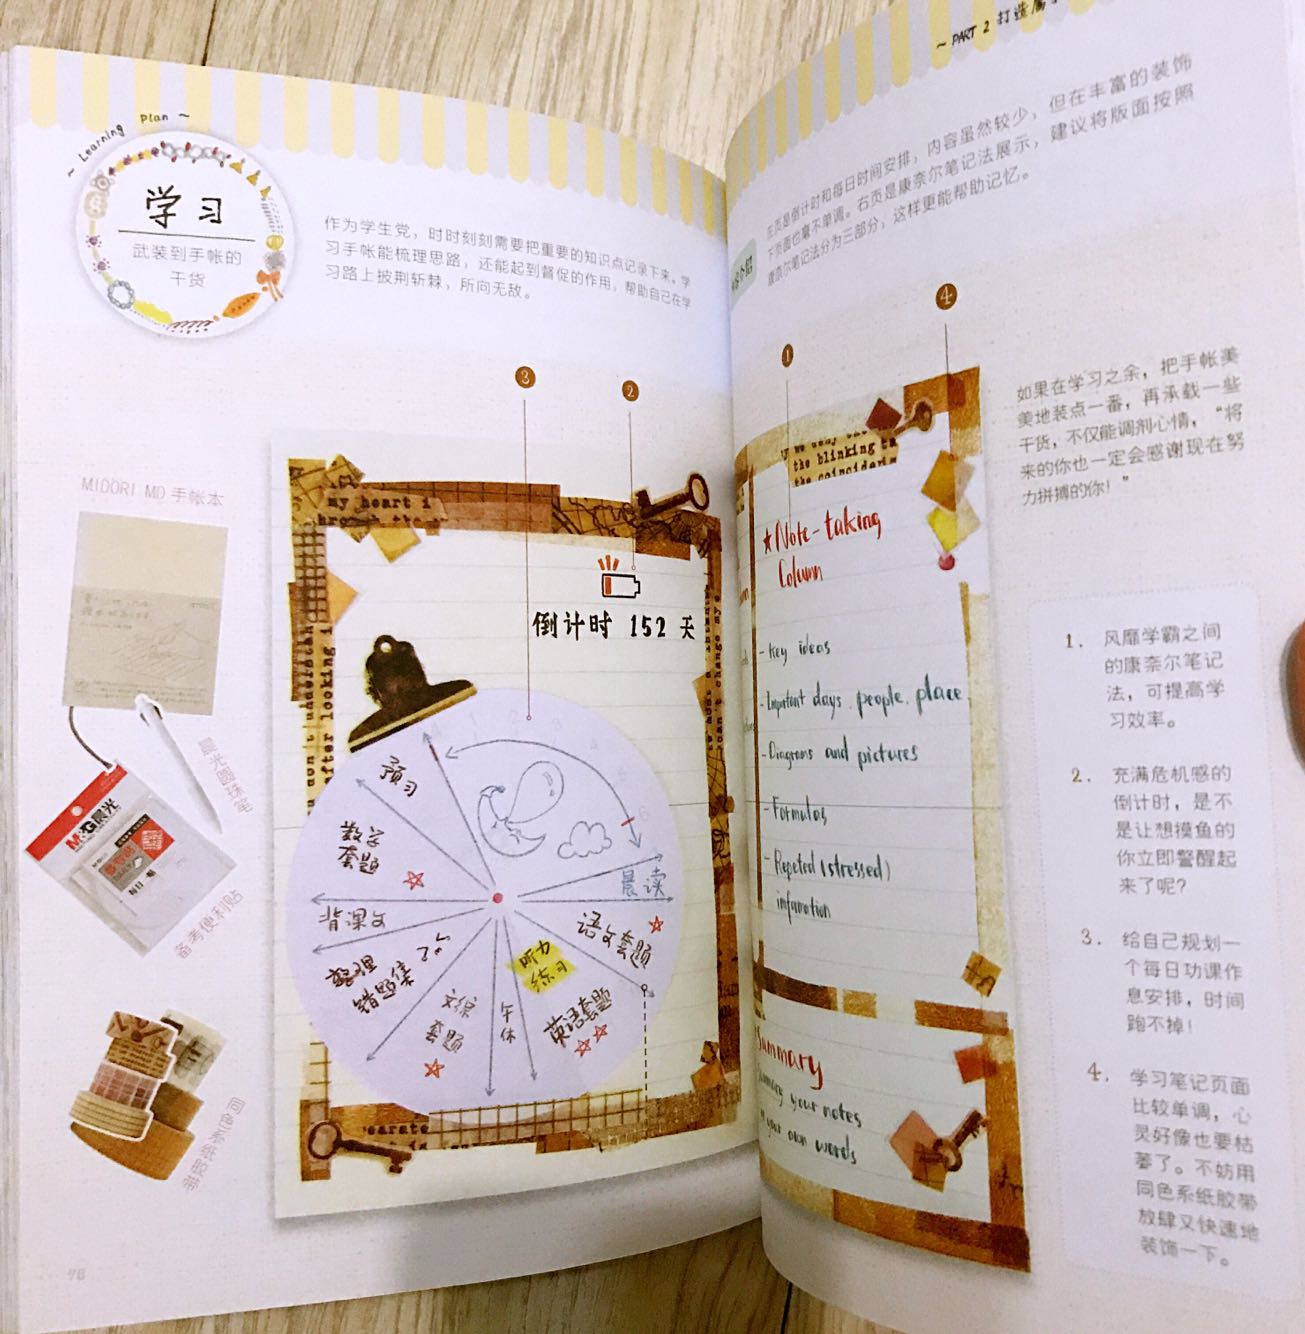 ~ Learning Plan ~
学习
武装到手帐的
干货
作为学生党，时时刻刻需要把重要的知识点记录下来。学
习手帐能梳理思路，还能起到督促的作用，帮助自己在学
习路上披荆斩棘，所向无敌。
3
2
MIDORI MD 手帐本
晨光圆珠笔
M&G晨光
备考便利贴
同色系纸胶带
my heart i
倒计时 152 天
预习
数学
套题
背课文
整理
错题集
文综
套题
午休
听力
练习
英语套题
语文套题
晨读
earate
~ PART 2 打造属
左页是倒计时和每日时间安排，内容虽然较少，但在丰富的装饰
下页面也毫不单调。右页是康奈尔笔记法展示，建议将版面按照
康奈尔笔记法分为三部分，这样更能帮助记忆。
4
1
the blinking ta
the coinciderin
★Note-taking
Column
- Key ideas
- Important days, people, place
- Diagrams and pictures
- Formulas
- Repeted (stressed)
infamation
Summary
your notes
your own words
如果在学习之余，把手帐美
美地装点一番，再承载一些
干货，不仅能调剂心情，“将
来的你也一定会感谢现在努
力拼搏的你！”
1. 风靡学霸之间
的康奈尔笔记
法，可提高学
习效率。
2. 充满危机感的
倒计时，是不
是让想摸鱼的
你立即警醒起
来了呢？
3. 给自己规划一
个每日功课作
息安排，时间
跑不掉！
4. 学习笔记页面
比较单调，心
灵好像也要枯
萎了。不妨用
同色系纸胶带
放肆又快速地
装饰一下。